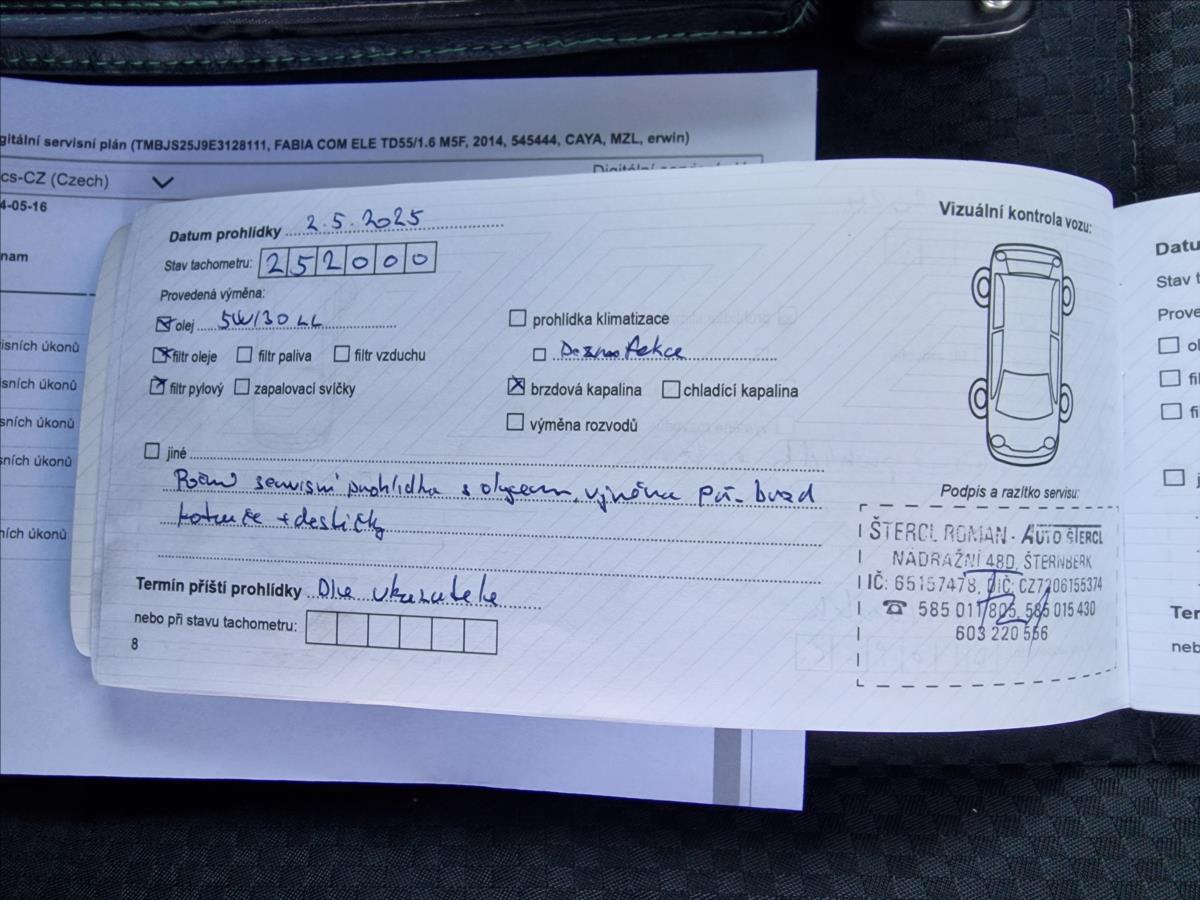 gitální servisní plán (TMBJS25J9E3128111, FABIA COM ELE TD55/1.6 M5F, 2014, 545444, CAYA, MZL, erwin)
cs-CZ (Czech)
4-05-16
nam
isních úkonů
isních úkonů
sních úkonů
sních úkonů
ních úkonů
Datum prohlídky 2.5.2025
Stav tachometru: 252000
Provedená výměna:
olej 5W/30 LL
filtr oleje filtr paliva filtr vzduchu
filtr pylový zapalovací svíčky
prohlídka klimatizace
brzdová kapalina chladící kapalina
výměna rozvodů
jiné
servisní prohlídka s olejem, výměna př. brzd
kotouče + destičky
Termín příští prohlídky Dle ukazatele
nebo při stavu tachometru:
8
Vizuální kontrola vozu:
Podpis a razítko servisu:
ŠTERCL ROMAN - AUTO ŠTERCL
NÁDRAŽNÍ 48D, ŠTERNBERK
IČ: 65157478, DIČ: CZ7206155374
☎ 585 011 805, 585 015 430
603 220 556
Datu
Stav t
Prove
ol
fil
fi
j
Ter
neb